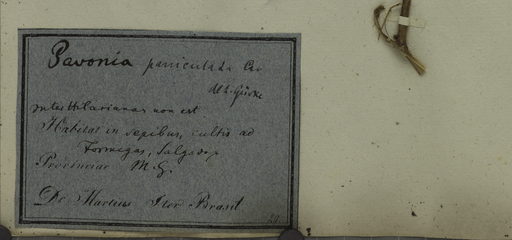 Pavonia paniculata Cav
det. Gürke
Hilariana non est
Habitat in sepibus, cultis ad
Formigas, Salgado,
Provinciae M. G.
Dr. Martius Iter Brasil.